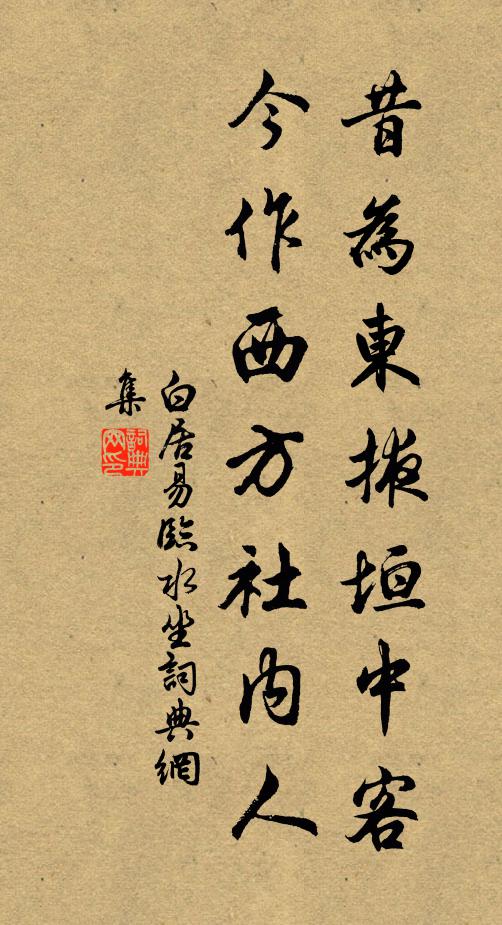 昔為東掖垣中客
今作西方社內人
白居易臨水坐詞典網
集
詞典網印